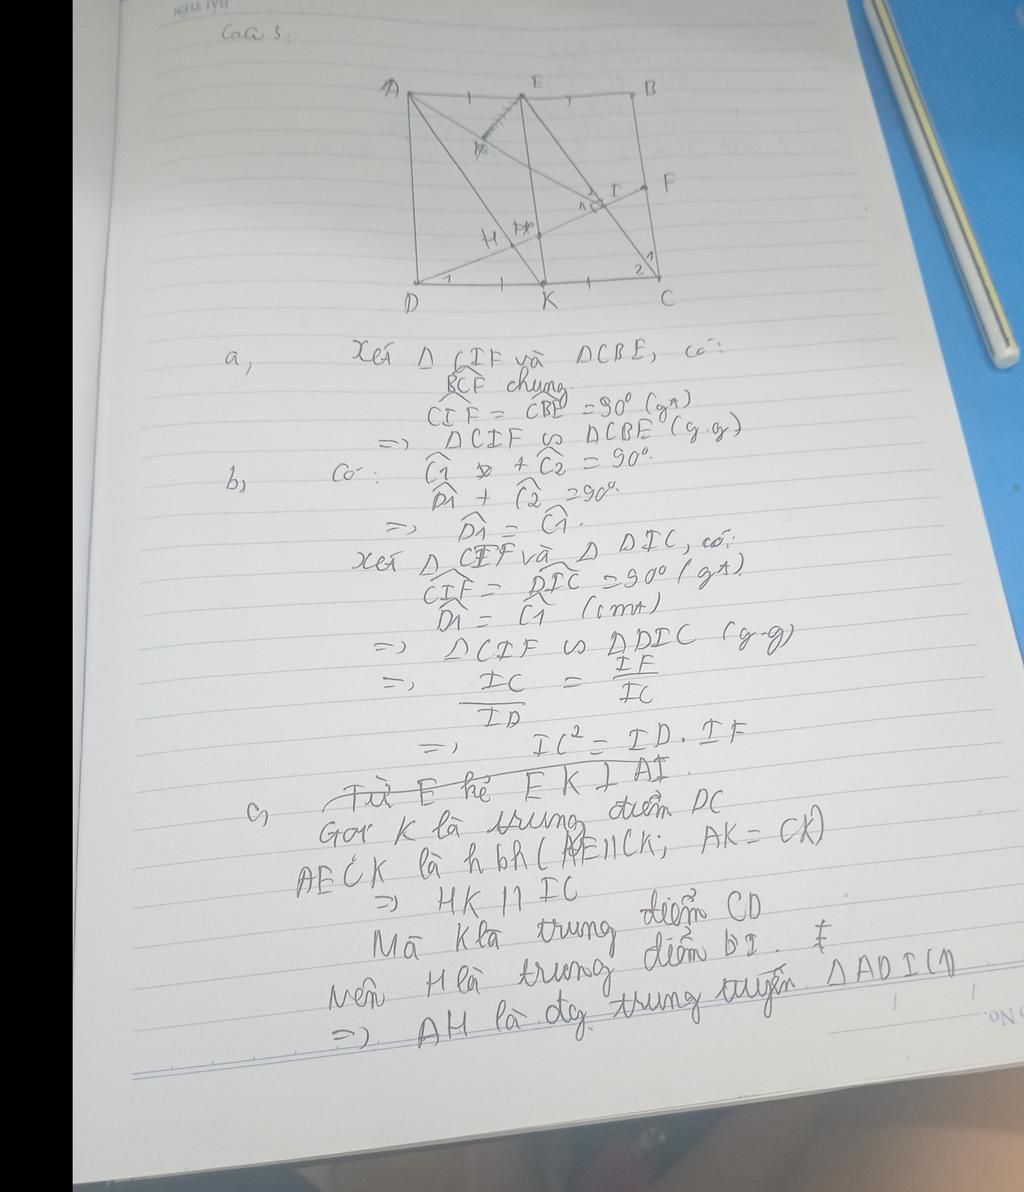 HẢI TIẾN
Câu 3:
A E B
K
1 2 I F
H
1 2 1
D K C
a, Xét Δ CIF và ΔCBE, có:
BCF chung
CIF = CBE = 90° (gt)
=> ΔCIF ∽ ΔCBE (g.g)
b, Có: C1 + C2 = 90°
D1 + C2 = 90°
=> D1 = C1.
Xét Δ CIF và Δ DIC, có:
CIF = DIC = 90° (gt)
D1 = C1 (cmt)
=> ΔCIF ∽ ΔDIC (g-g)
=> IC/ID = IF/IC
=> IC² = ID. IF
c, Từ E kẻ EK ⊥ AI.
Gọi K là trung điểm DC
AECK là hbh (AE//CK; AK = CK)
=> HK // IC
Mà K là trung điểm CD
Nên H là trung điểm DI.
=> AH là đg trung tuyến ΔADI (1)
No.